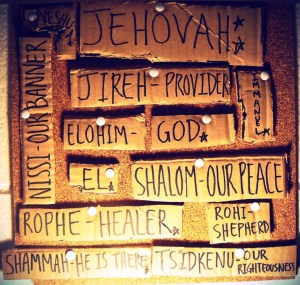 YESHUA
JEHOVAH
NISSI-OUR BANNER
JIREH-PROVIDER
ELOHIM-GOD
EL
SHALOM-OUR PEACE
ROPHE-HEALER
ROHI-
SHEPHERD
SHAMMAH-HE IS THERE
TSIDKENU-OUR
RIGHTEOUSNESS